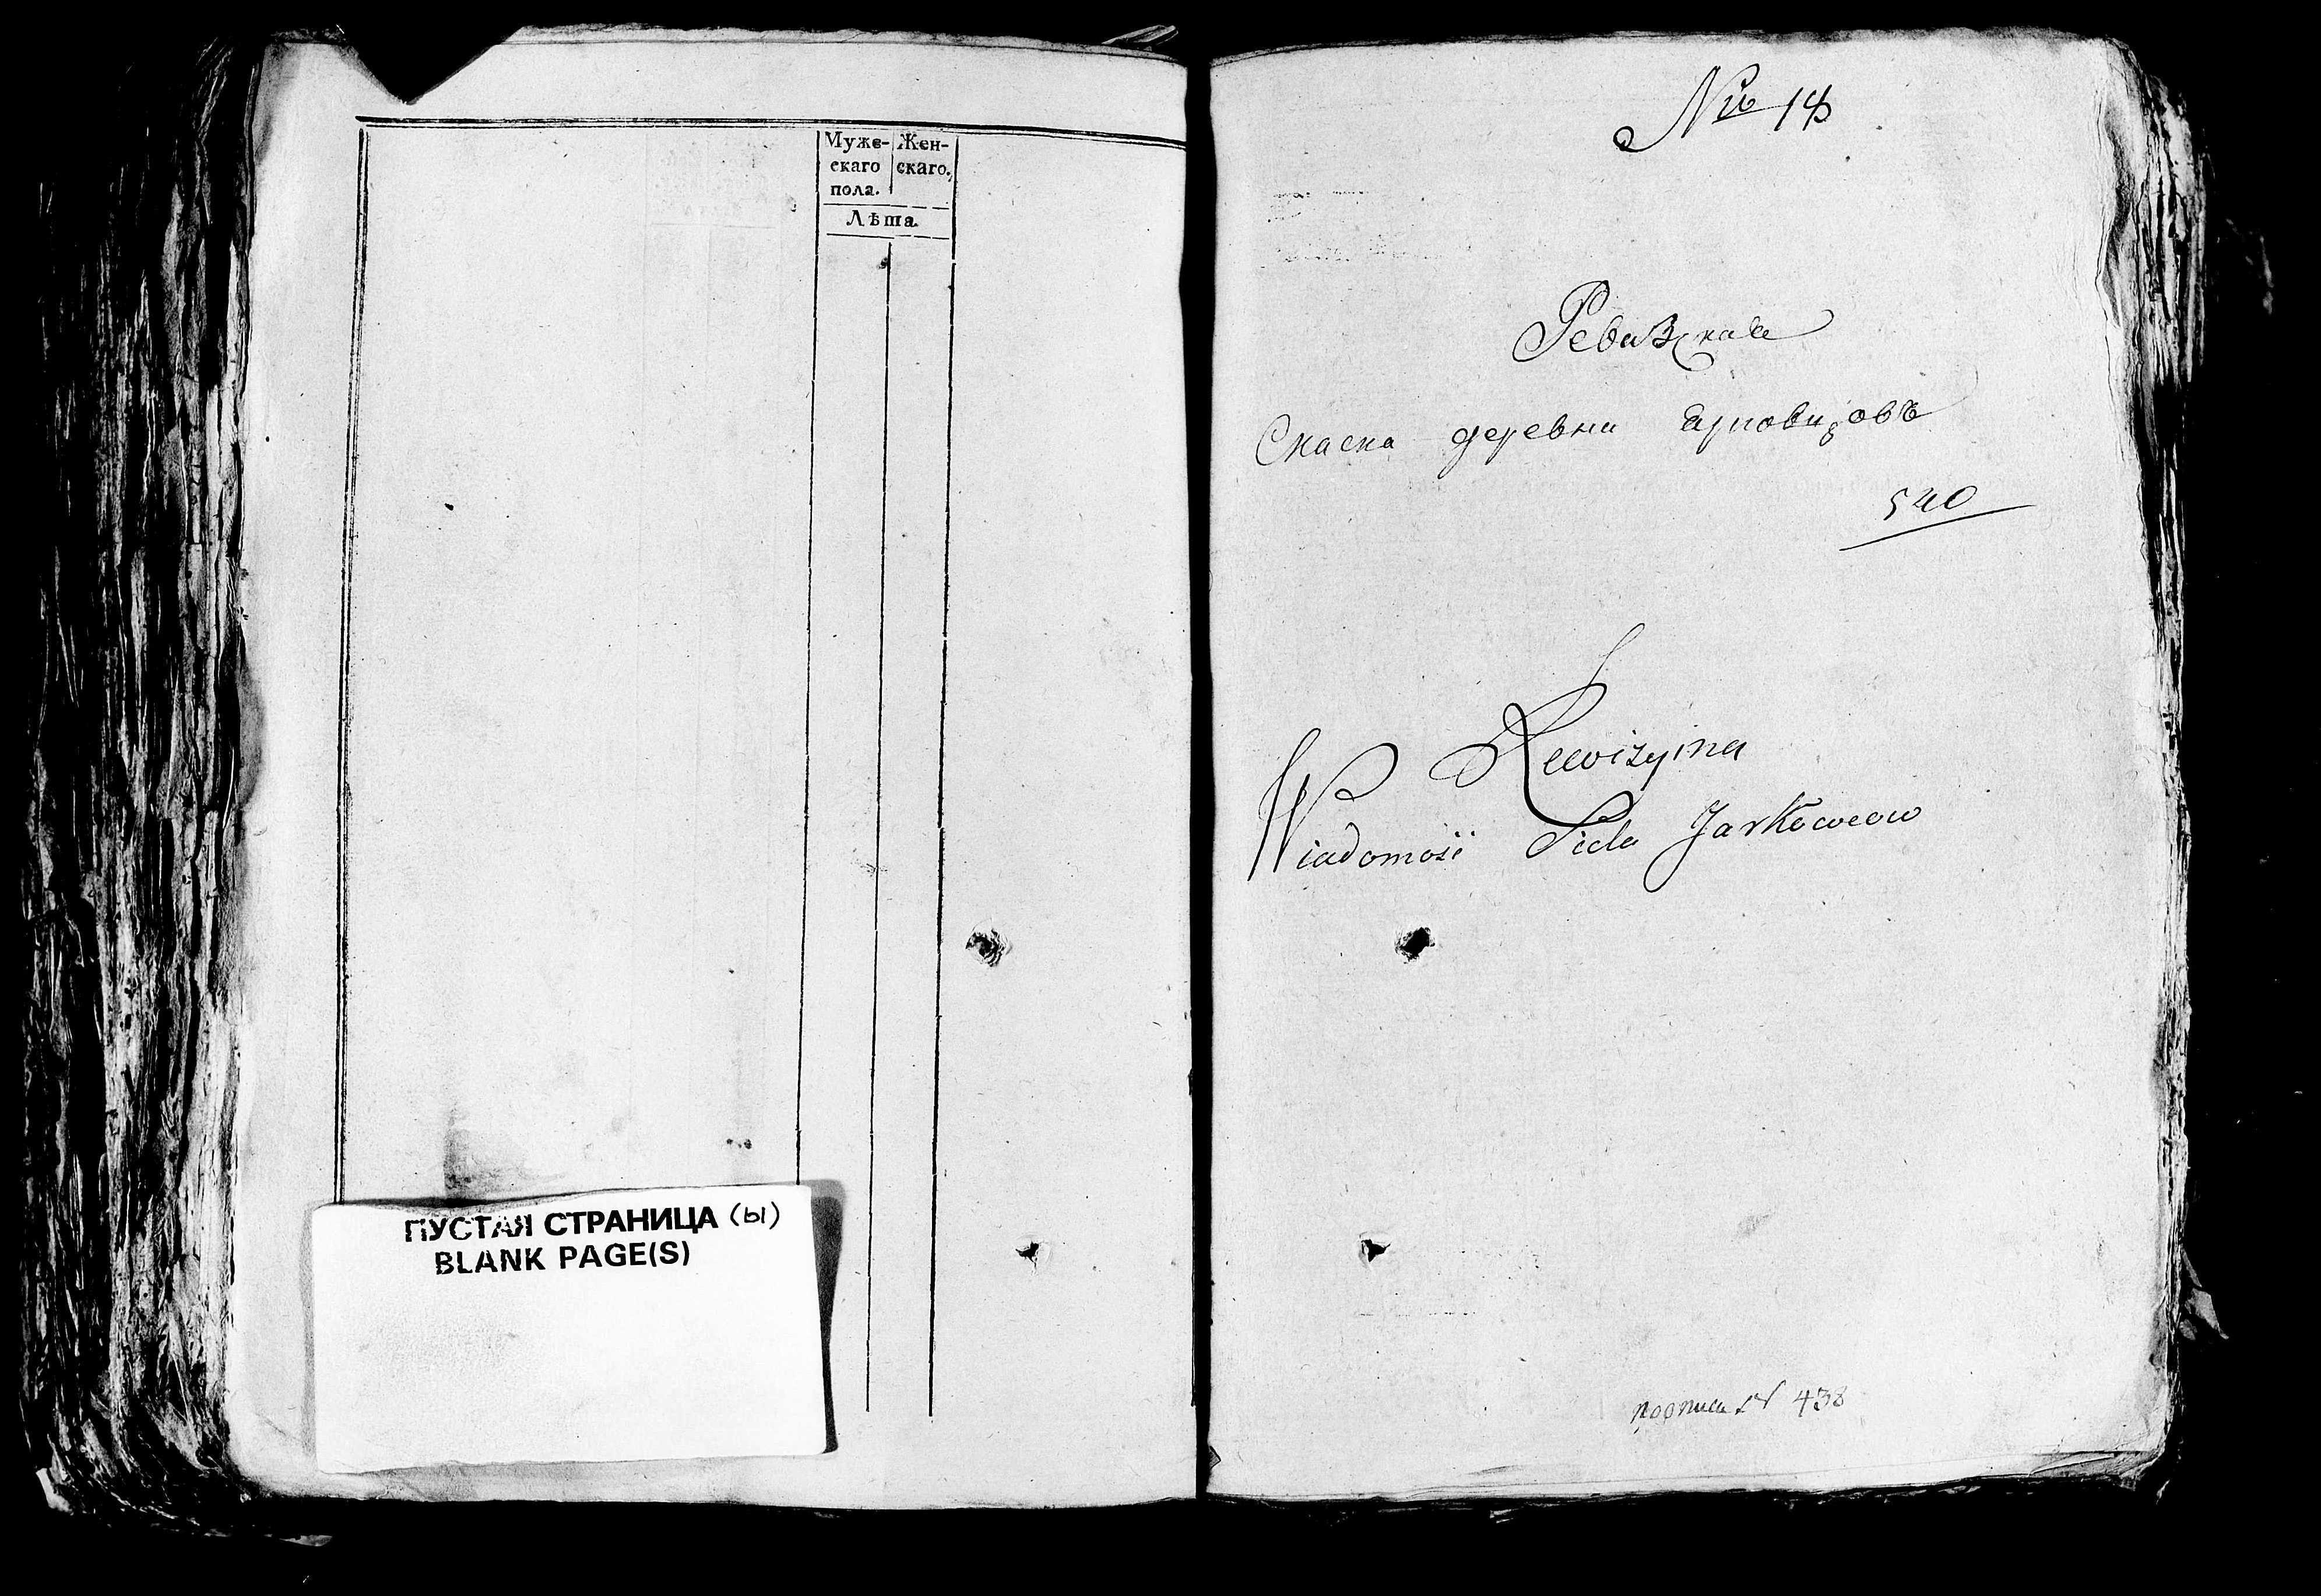 Муже-
скаго
пола.
Жен-
скаго.
Лѣта.
ПУСТАЯ СТРАНИЦА (ы)
BLANK PAGE(S)
№ 14
Ревизская
Скаска деревни Ярковцовъ
540
Rewizyina
Wiadomość Sieła Jarkowcow
438